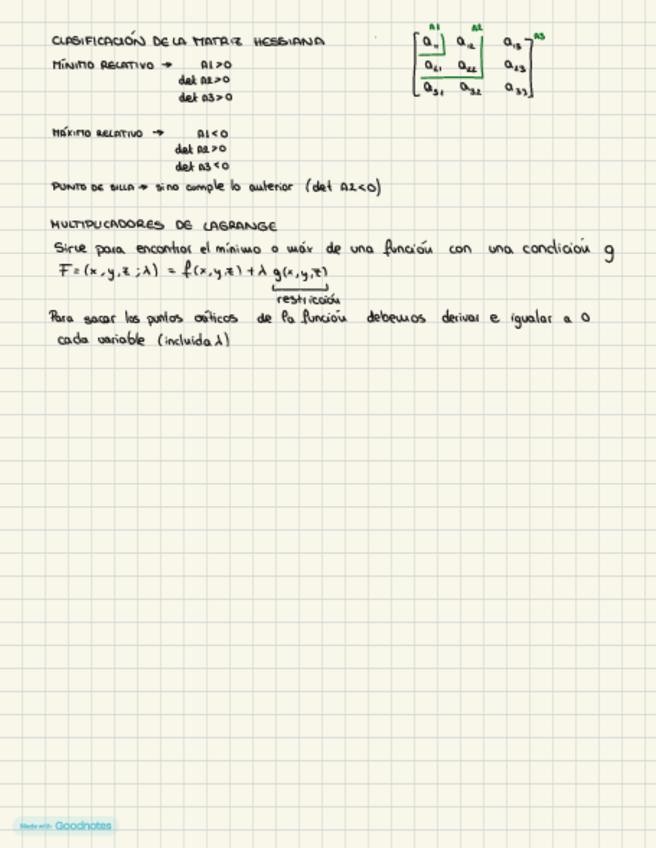 CLASIFICACIÓN DE LA MATRIZ HESSIANA
MÍNIMO RELATIVO → A1>0
det A2>0
det A3>0
A1 A2 A3
a11 a12 a13
a21 a22 a23
a31 a32 a33
MÁXIMO RELATIVO → A1<0
det A2>0
det A3<0
PUNTO DE SILLA → sino cumple lo anterior (det A2<0)
MULTIPLICADORES DE LAGRANGE
Sirve para encontrar el mínimo o máx de una función con una condición g
F=(x,y,z;λ) = f(x,y,z)+λ g(x,y,z)
restricción
Para sacar los puntos críticos de la función debemos derivar e igualar a 0
cada variable (incluida λ)
Made with Goodnotes